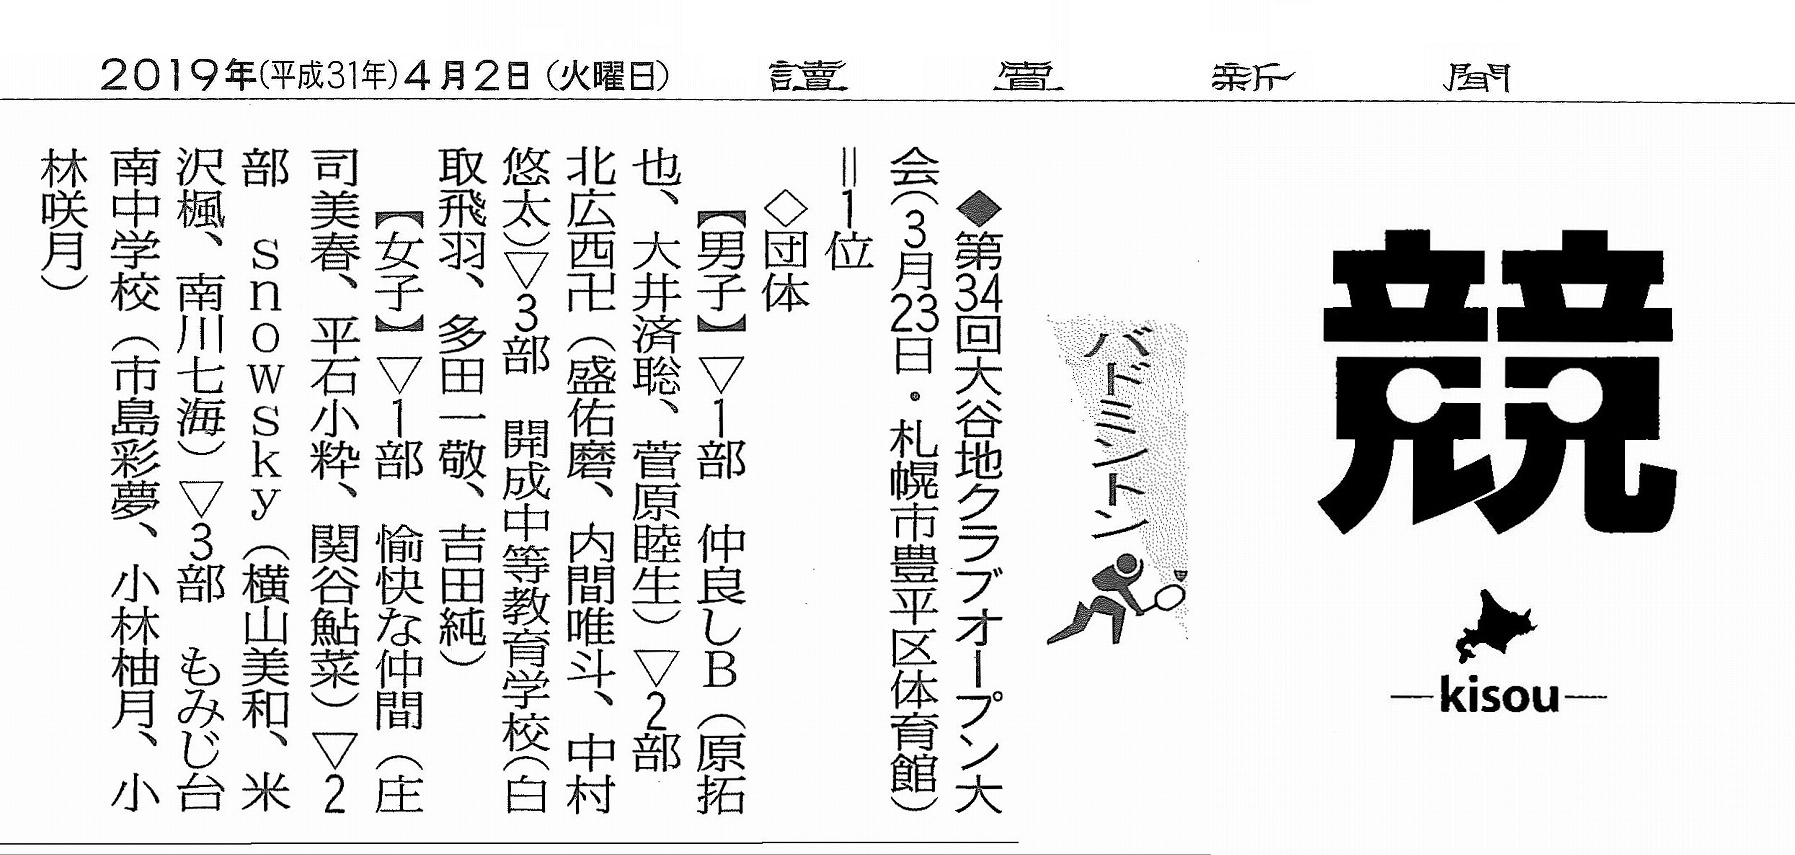 2019年(平成31年)4月2日(火曜日)
讀賣新聞
競
kisou
バドミントン
◆第34回大谷地クラブオープン大
会(3月23日・札幌市豊平区体育館)
＝1位
◇団体
【男子】▽1部　仲良しB(原拓
也、大井済聡、菅原睦生)▽2部
北広西卍(盛佑磨、内間唯斗、中村
悠太)▽3部　開成中等教育学校(白
取飛羽、多田一敬、吉田純)
【女子】▽1部　愉快な仲間(庄
司美春、平石小粋、関谷鮎菜)▽2
部　snowsky(横山美和、米
沢楓、南川七海)▽3部　もみじ台
南中学校(市島彩夢、小林柚月、小
林咲月)